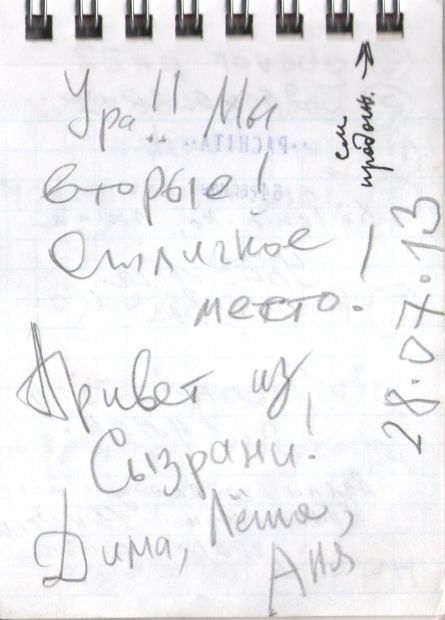 Ура!! Мы
вторые!
Отличное
место!
Привет из
Сызрани!
Дима, Лёша,
Аня
28.07.13
см
продолж. →